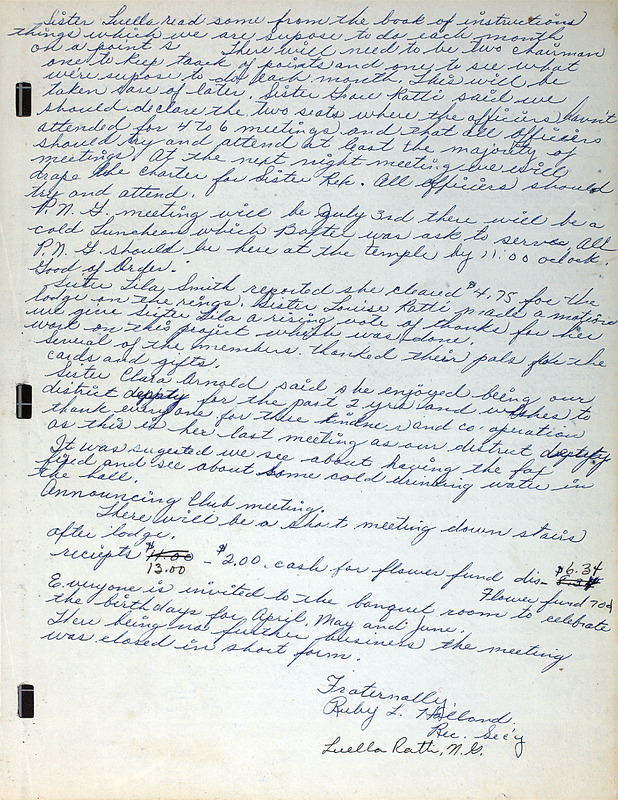 Sister Luella read some from the book of instructions
things which we are supose to do each month
on a point s There will need to be two chairman
one to keep track of points and one to see what
we're supose to do each month. This will be
taken care of later. Sister Grace Ratti said we
should declare the two seats where the officers hav'nt
attended for 4 to 6 meetings and that all officers
should try and attend at least the majority of
meetings. At the next night meeting we will
drape the charter for Sister . All officers should
try and attend.
P.N.G. meeting will be July 3rd there will be a
cold Luncheon which was ask to serve. All
P.N.G. should be here at the temple by 11:00 oclock.
Good of Order.
Sister Lila Smith reported she cleared $4.75 for the
lodge on the rings. Sister Louise Ratti made a motion
we give Sister Lila a rising vote of thanks for her
work on this project which was done.
Several of the members thanked their pals for the
cards and gifts.
Sister Clara Arnold said she enjoyed being our
district deputy for the past 2 yrs and wishes to
thank everyone for their kindness and co-operation
as this is her last meeting as our district deputy
It was sugested we see about having the fan
fixed and see about some cold drinking water in
the hall.
Announcing Club meeting.
There will be a short meeting down stairs
after lodge.
reciepts $11.00 - $2.00 cash for flower fund dis- $6.34
13.00
Flower fund 70¢
Everyone is invited to the banquet room to celebrate
the birthdays for April, May and June.
There being no further business the meeting
was closed in short form.
Fraternally,
Ruby L. Holland.
Rec. Sec'y
Luella Rath, N.G.